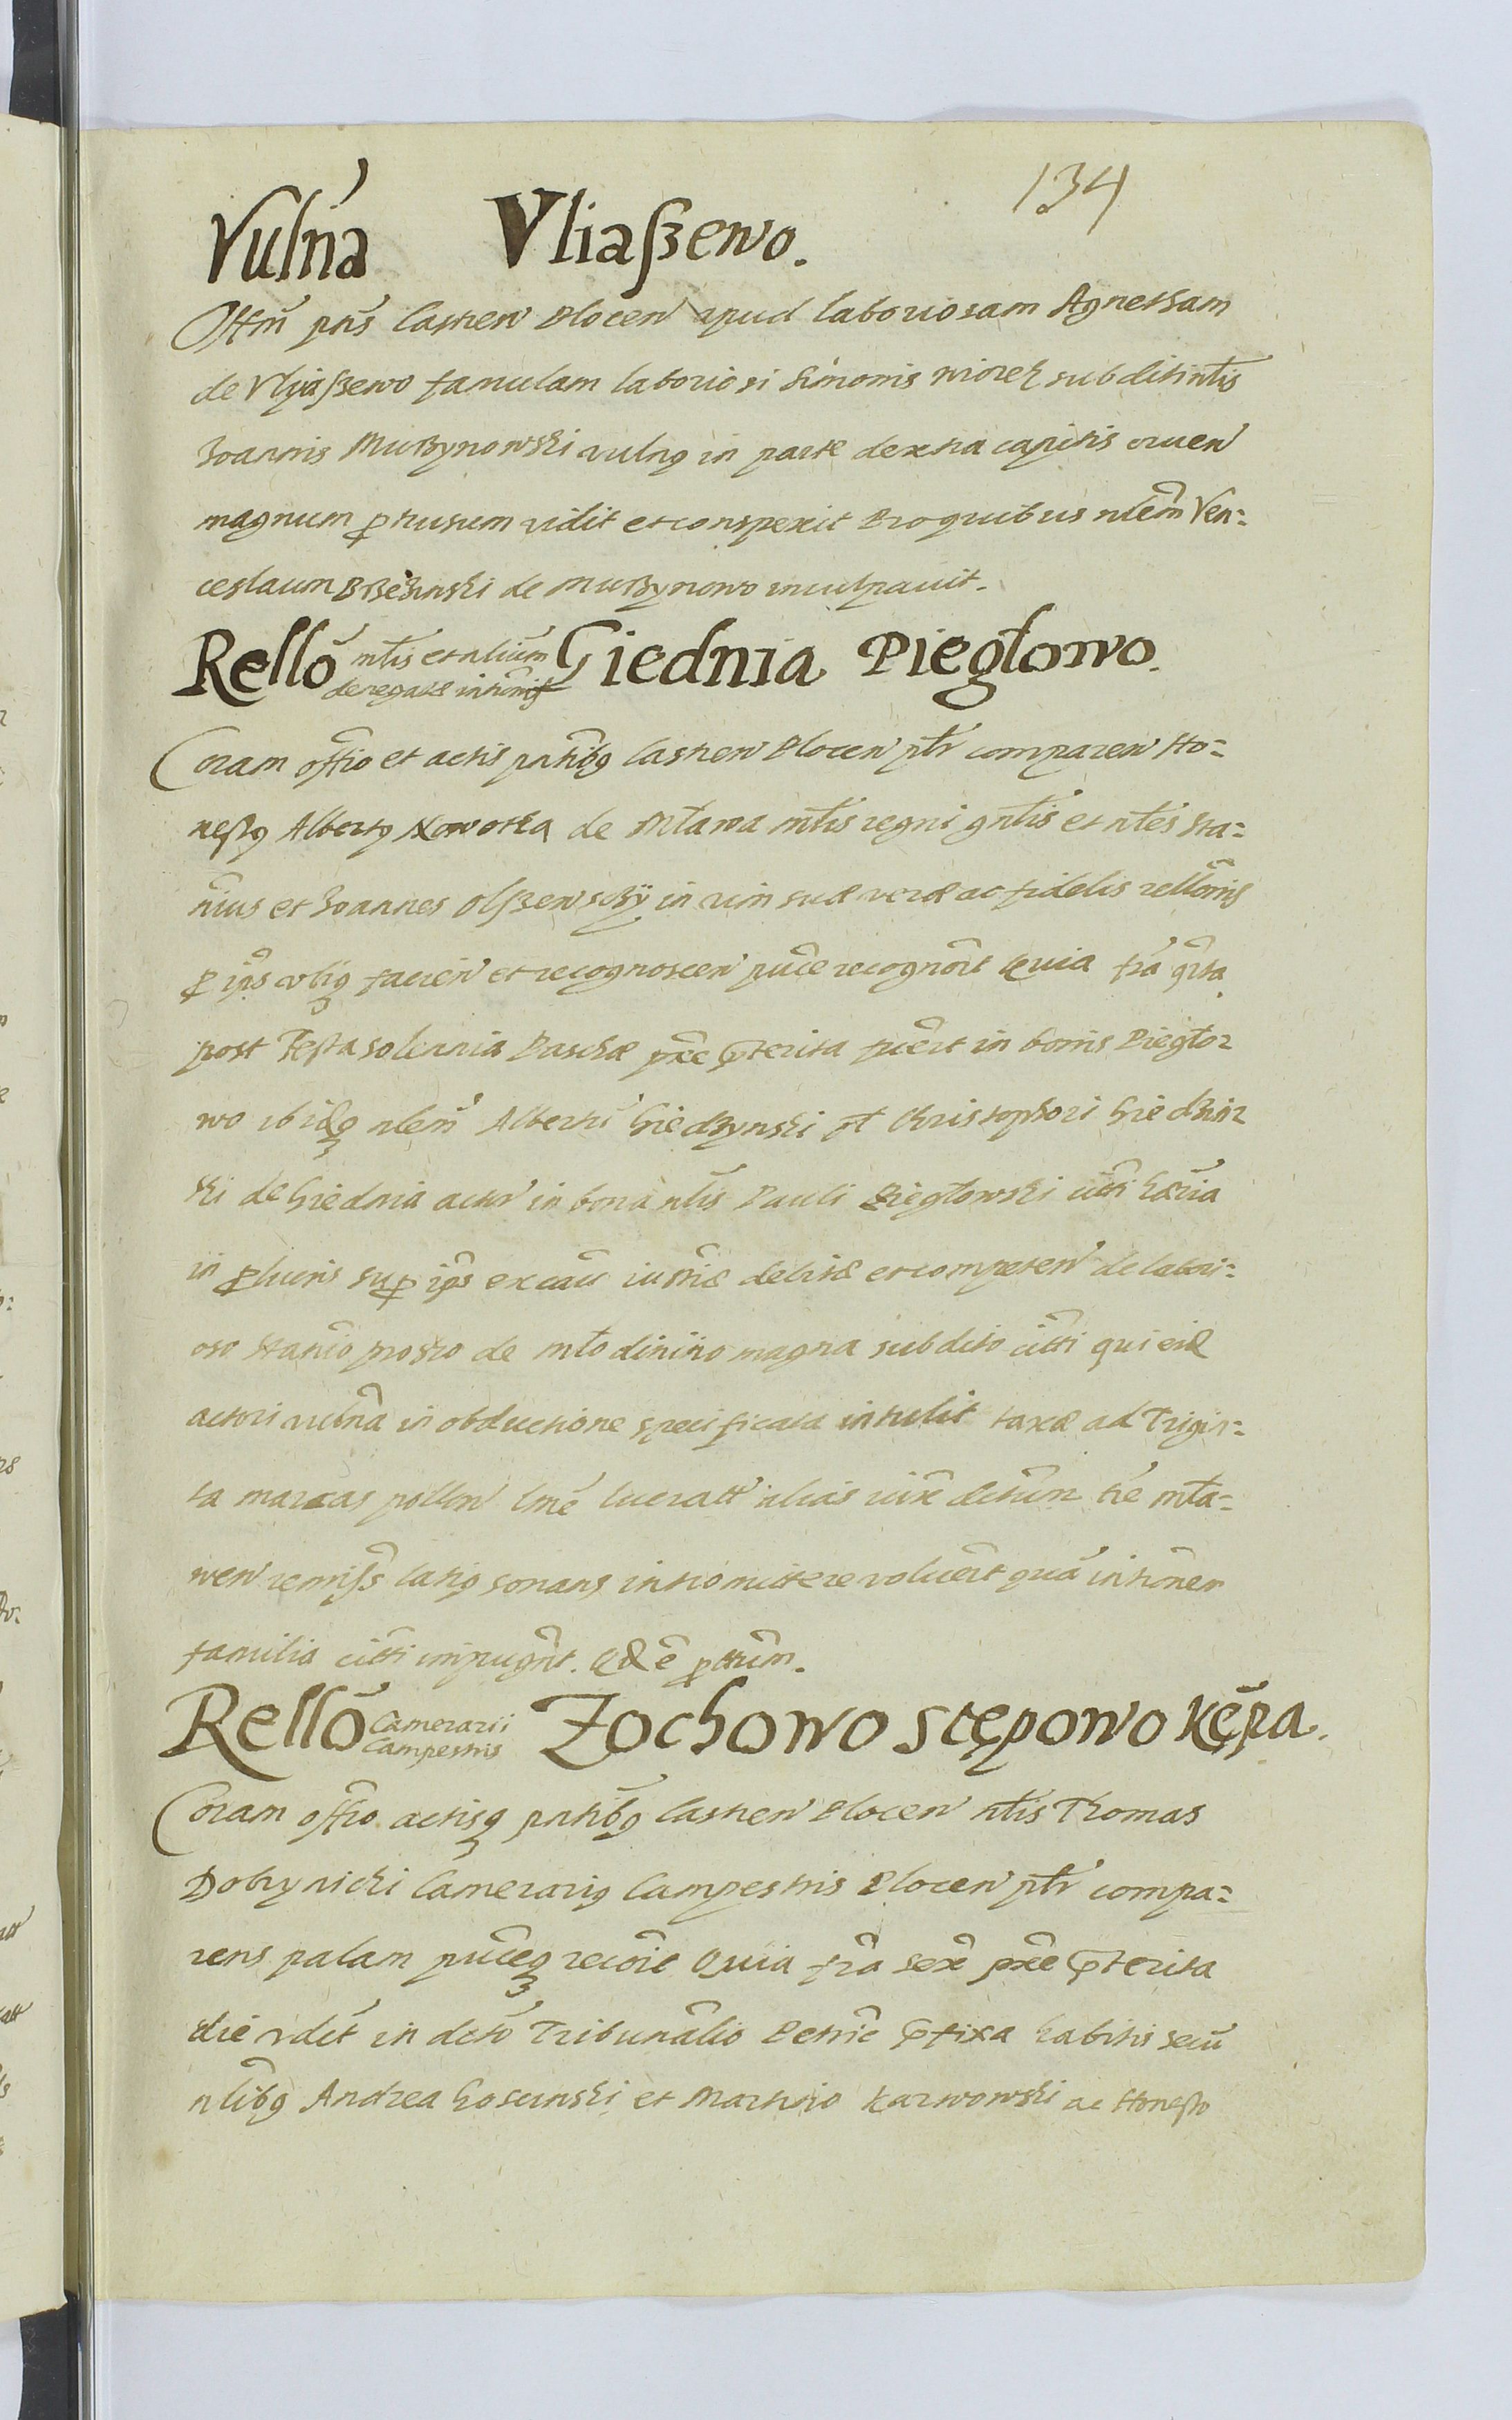 134
Vulńa Vliaßewo.
Offm̃ pñs Castren̄ Plocen̄ apud laboriosam Agnetham
de Vlyaßewo famulam laboriosi Simonis Wiorek subditi nt̃lis
Joannis Mußynowski vulnꝯ in parte dextra capitis cruen̄
magnum ꝑtusum vidit et conspexit Pro quibus nl̃em Ven=
ceslaum Bßesinski de Mußynowo inculpavit.
Rellõ mt̃lis et nliũm de negata intrõmis Giednia Piegłowo.
Coram offio et actis pñtibꝯ Castren̄ Plocen̄ pt̃r comparen̄ Ho=
nestꝯ Albertꝯ Nowotka de Mława mt̃lis regni gñtlis et nt̃les Sta=
nĩus et Joannes Olßewscÿ in vim suæ veræ ac fidelis rellõnis
ꝑ ip̃os vtiꝗ facien̄ et recognoscen̄ puc̃e recognõrt Quia fr̃a qr̃ta
post Festa solennia Paschæ pxe p̃terita fuẽrt in bonis Piegło
wo ibidꝗ nlem̃ Alberti Giedzynski nt̃ Christophori Giedzin
ski de Giednia actor̃ in bona nt̃lis Pauli Piegłowski citti hær̃ia
in ꝑlucris suꝑ ip̃o ex cau iustĩæ debitæ et competen̄ de labori=
oso Stanĩo prosto de Młodinino magna subdito citti qui eid̃
actori vulñra in obductione specificata intulit taxæ ad Trigin=
ta marcas pollon̄ lm̃e lucratt alias iux̃ decrm̃ tr̃e Mła=
wen̄ remiss̃ latiꝯ sonans intromittere voluẽrt quã intrõnem
familia citti impugñrt. Qd̃ ẽ ꝑtitũm.
Rellõ Camerarii Campestris Zochowo Stępowo Kępa.
Coram offio actisꝗ pñtibꝯ Castren̄ Plocen̄ nt̃lis Thomas
Dobrynicki Camerariꝯ Campestris Plocen̄ pt̃r compa=
rens palam puc̃eꝗ recõrt Quia fr̃a sex̃ pxe p̃terita
die vdet̃ in dcto Tribunãlio Petric̃ p̃fixa habitis secũ
nlibꝯ Andrea Goscinski et Martino Karwowski ac Honesto